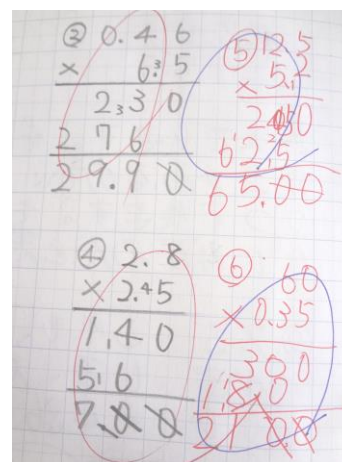 ② 0.46
× 6.5
2,30
276
29.90
⑤ 12.5
× 5.
62,5
65.00
④ 2.8
× 2.45
1,40
5,6
7.00
⑥ 60
× 0.35
300
1,8,0
21 0.0